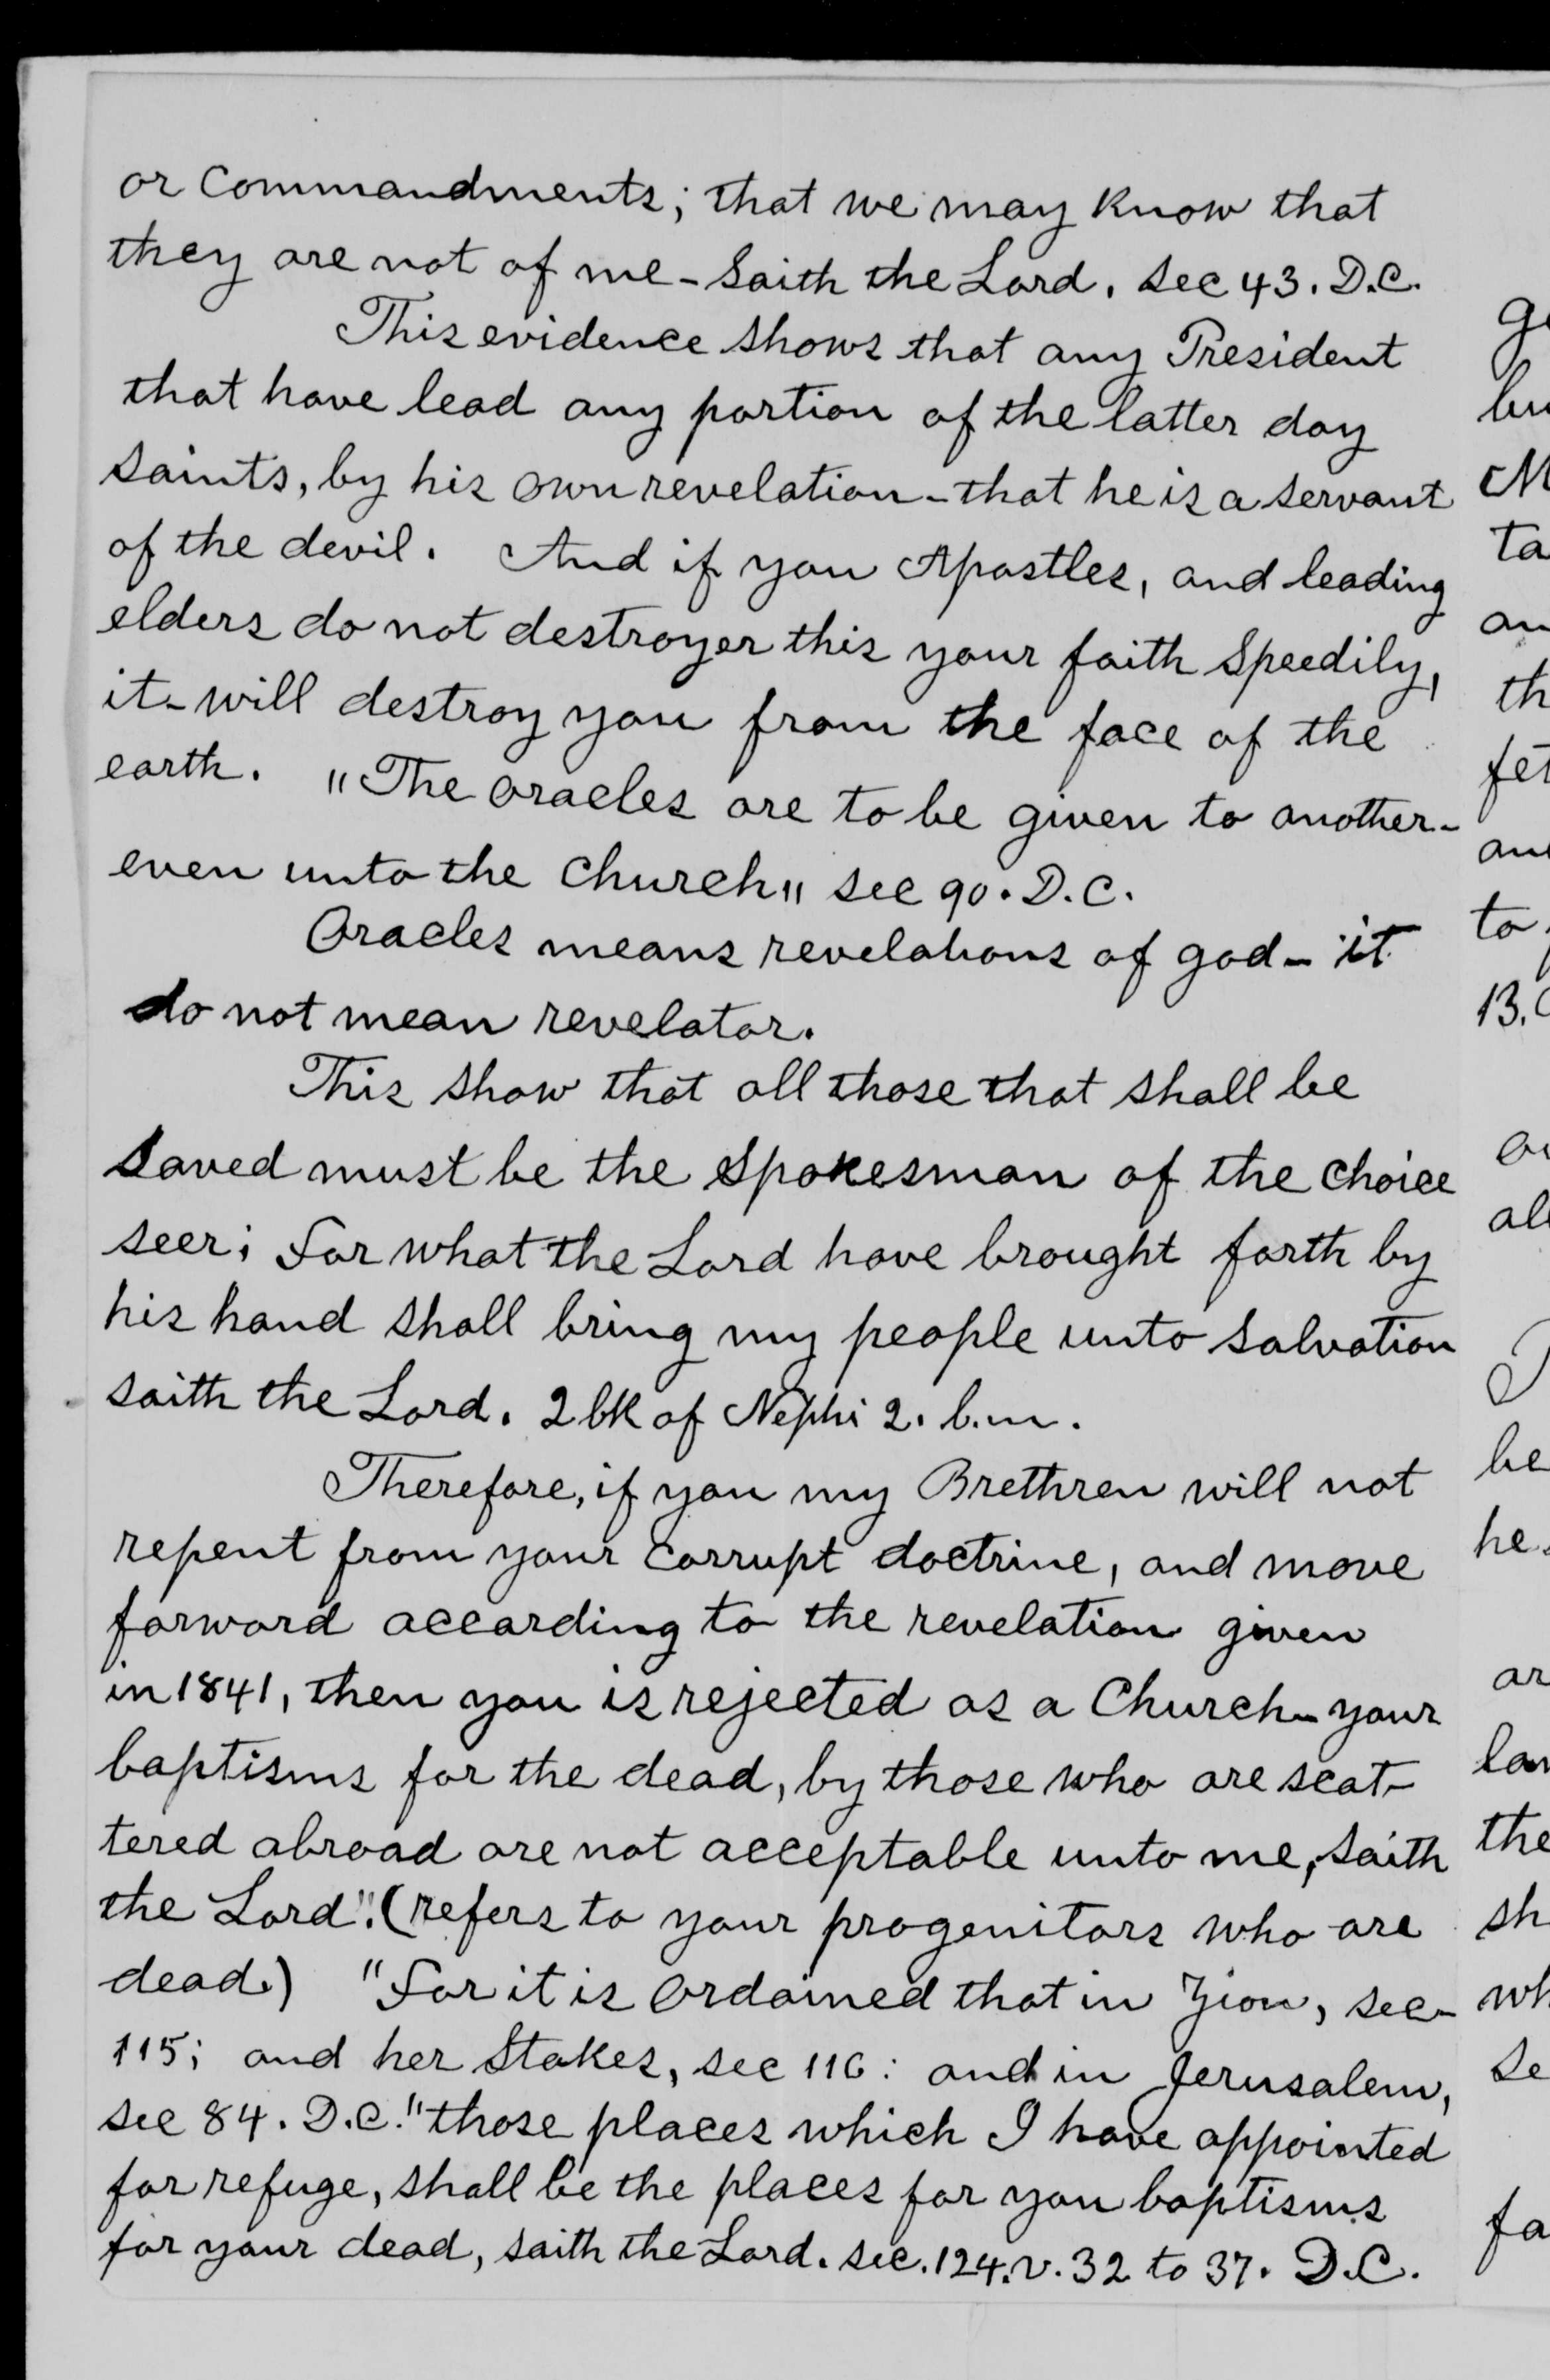 or Commandments; that we may know that
they are not of me - Saith the Lord. Sec 43. D.C.
This evidence shows that any President
that have lead any portion of the latter day
Saints, by his own revelation - that he is a servant
of the devil. And if you Apostles, and leading
elders do not destroyer this your faith Speedily,
it - will destroy you from the face of the
earth. "The oracles are to be given to another -
even unto the Church" see 90. D.C.
Oracles means revelations of god - it
do not mean revelator.
This show that all those that shall be
Saved must be the Spokesman of the Choice
seer; For what the Lord have brought forth by
his hand shall bring my people unto Salvation
saith the Lord. 2 bk of Nephi 2. b.m.
Therefore, if you my Brethren will not
repent from your Corrupt doctrine, and move
forward according to the revelation given
in 1841, then you is rejected as a Church - your
baptisms for the dead, by those who are scat-
tered abroad are not acceptable unto me, Saith
the Lord". (refers to your progenitors who are
dead.) "For it is Ordained that in Zion, sec -
115; and her Stakes, sec 116: and in Jerusalem,
see 84. D.C." those places which I have appointed
for refuge, shall be the places for you baptisms
for your dead, saith the Lord. sec. 124. v. 32 to 37. D.C.
ta
th
to
13.
be
he
the
sh
fa